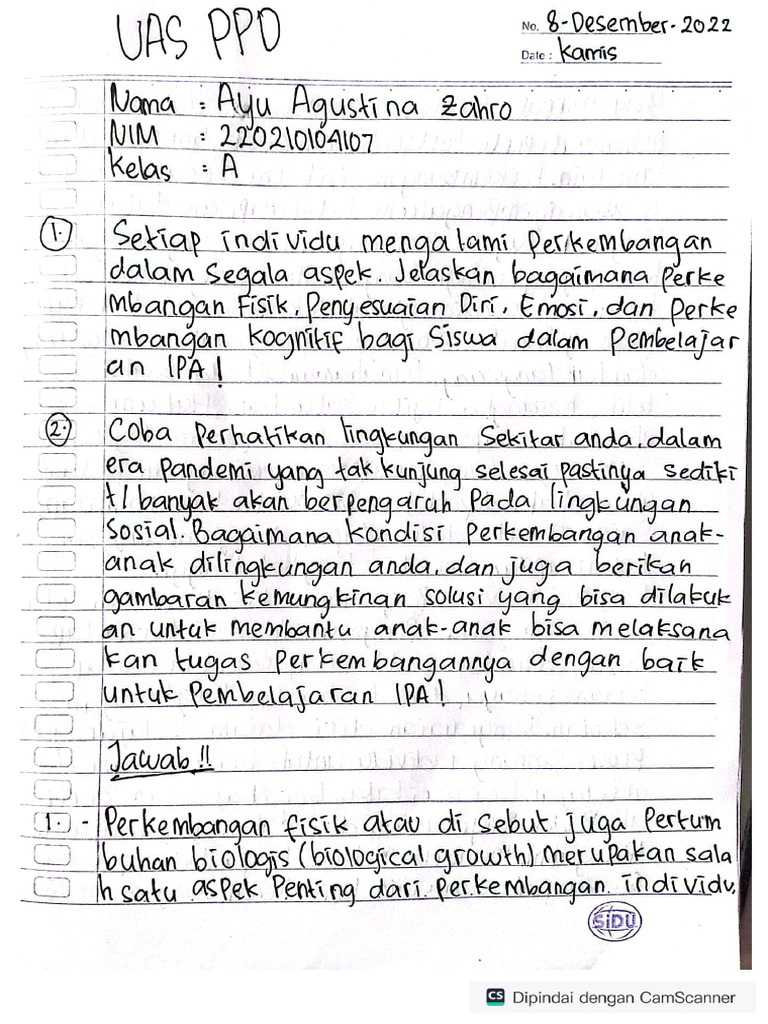 UAS PPD
No. 8-Desember-2022
Date : Kamis
Nama : Ayu Agustina Zahro
NIM : 220210104107
Kelas : A
1. Setiap individu mengalami Perkembangan
dalam Segala aspek. Jelaskan bagaimana Perke
mbangan Fisik, Penyesuaian Diri, Emosi, dan Perke
mbangan kognitif bagi Siswa dalam Pembelajar
an IPA!
2. Coba Perhatikan lingkungan Sekitar anda, dalam
era Pandemi yang tak kunjung selesai pastinya sediki
t/banyak akan berpengaruh Pada lingkungan
Sosial. Bagaimana kondisi Perkembangan anak-
anak dilingkungan anda, dan juga berikan
gambaran kemungkinan solusi yang bisa dilakuk
an untuk membantu anak-anak bisa melaksana
kan tugas Perkembangannya dengan baik
untuk Pembelajaran IPA!
Jawab!!
1. - Perkembangan fisik atau di sebut juga Pertum
buhan biologis (biological growth) merupakan sala
h satu aspek Penting dari Perkembangan individu.
SiDU
CS Dipindai dengan CamScanner